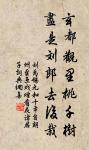 玄都觀里桃千樹
盡是劉郎去後栽
劉禹錫元和十年自朗
州至京戲贈看花諸君
子